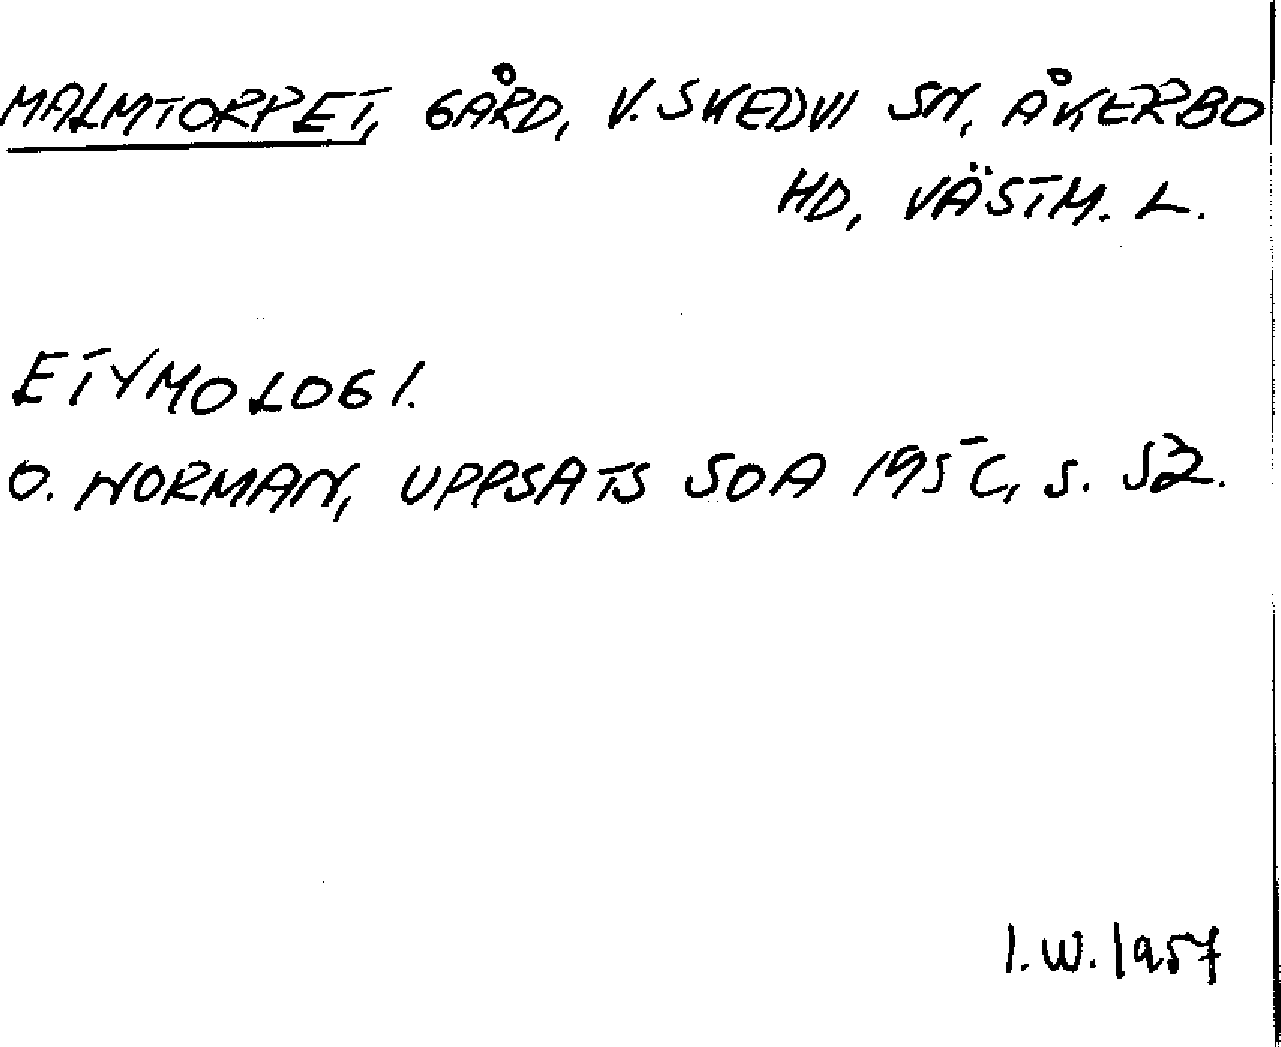 MALMTORPET, GÅRD, V. SKEDVI SN, ÅKERBO
HD, VÄSTM. L.
ETYMOLOGI.
O. NORMAN, UPPSATS SOA s. 52.
I.W. 1957